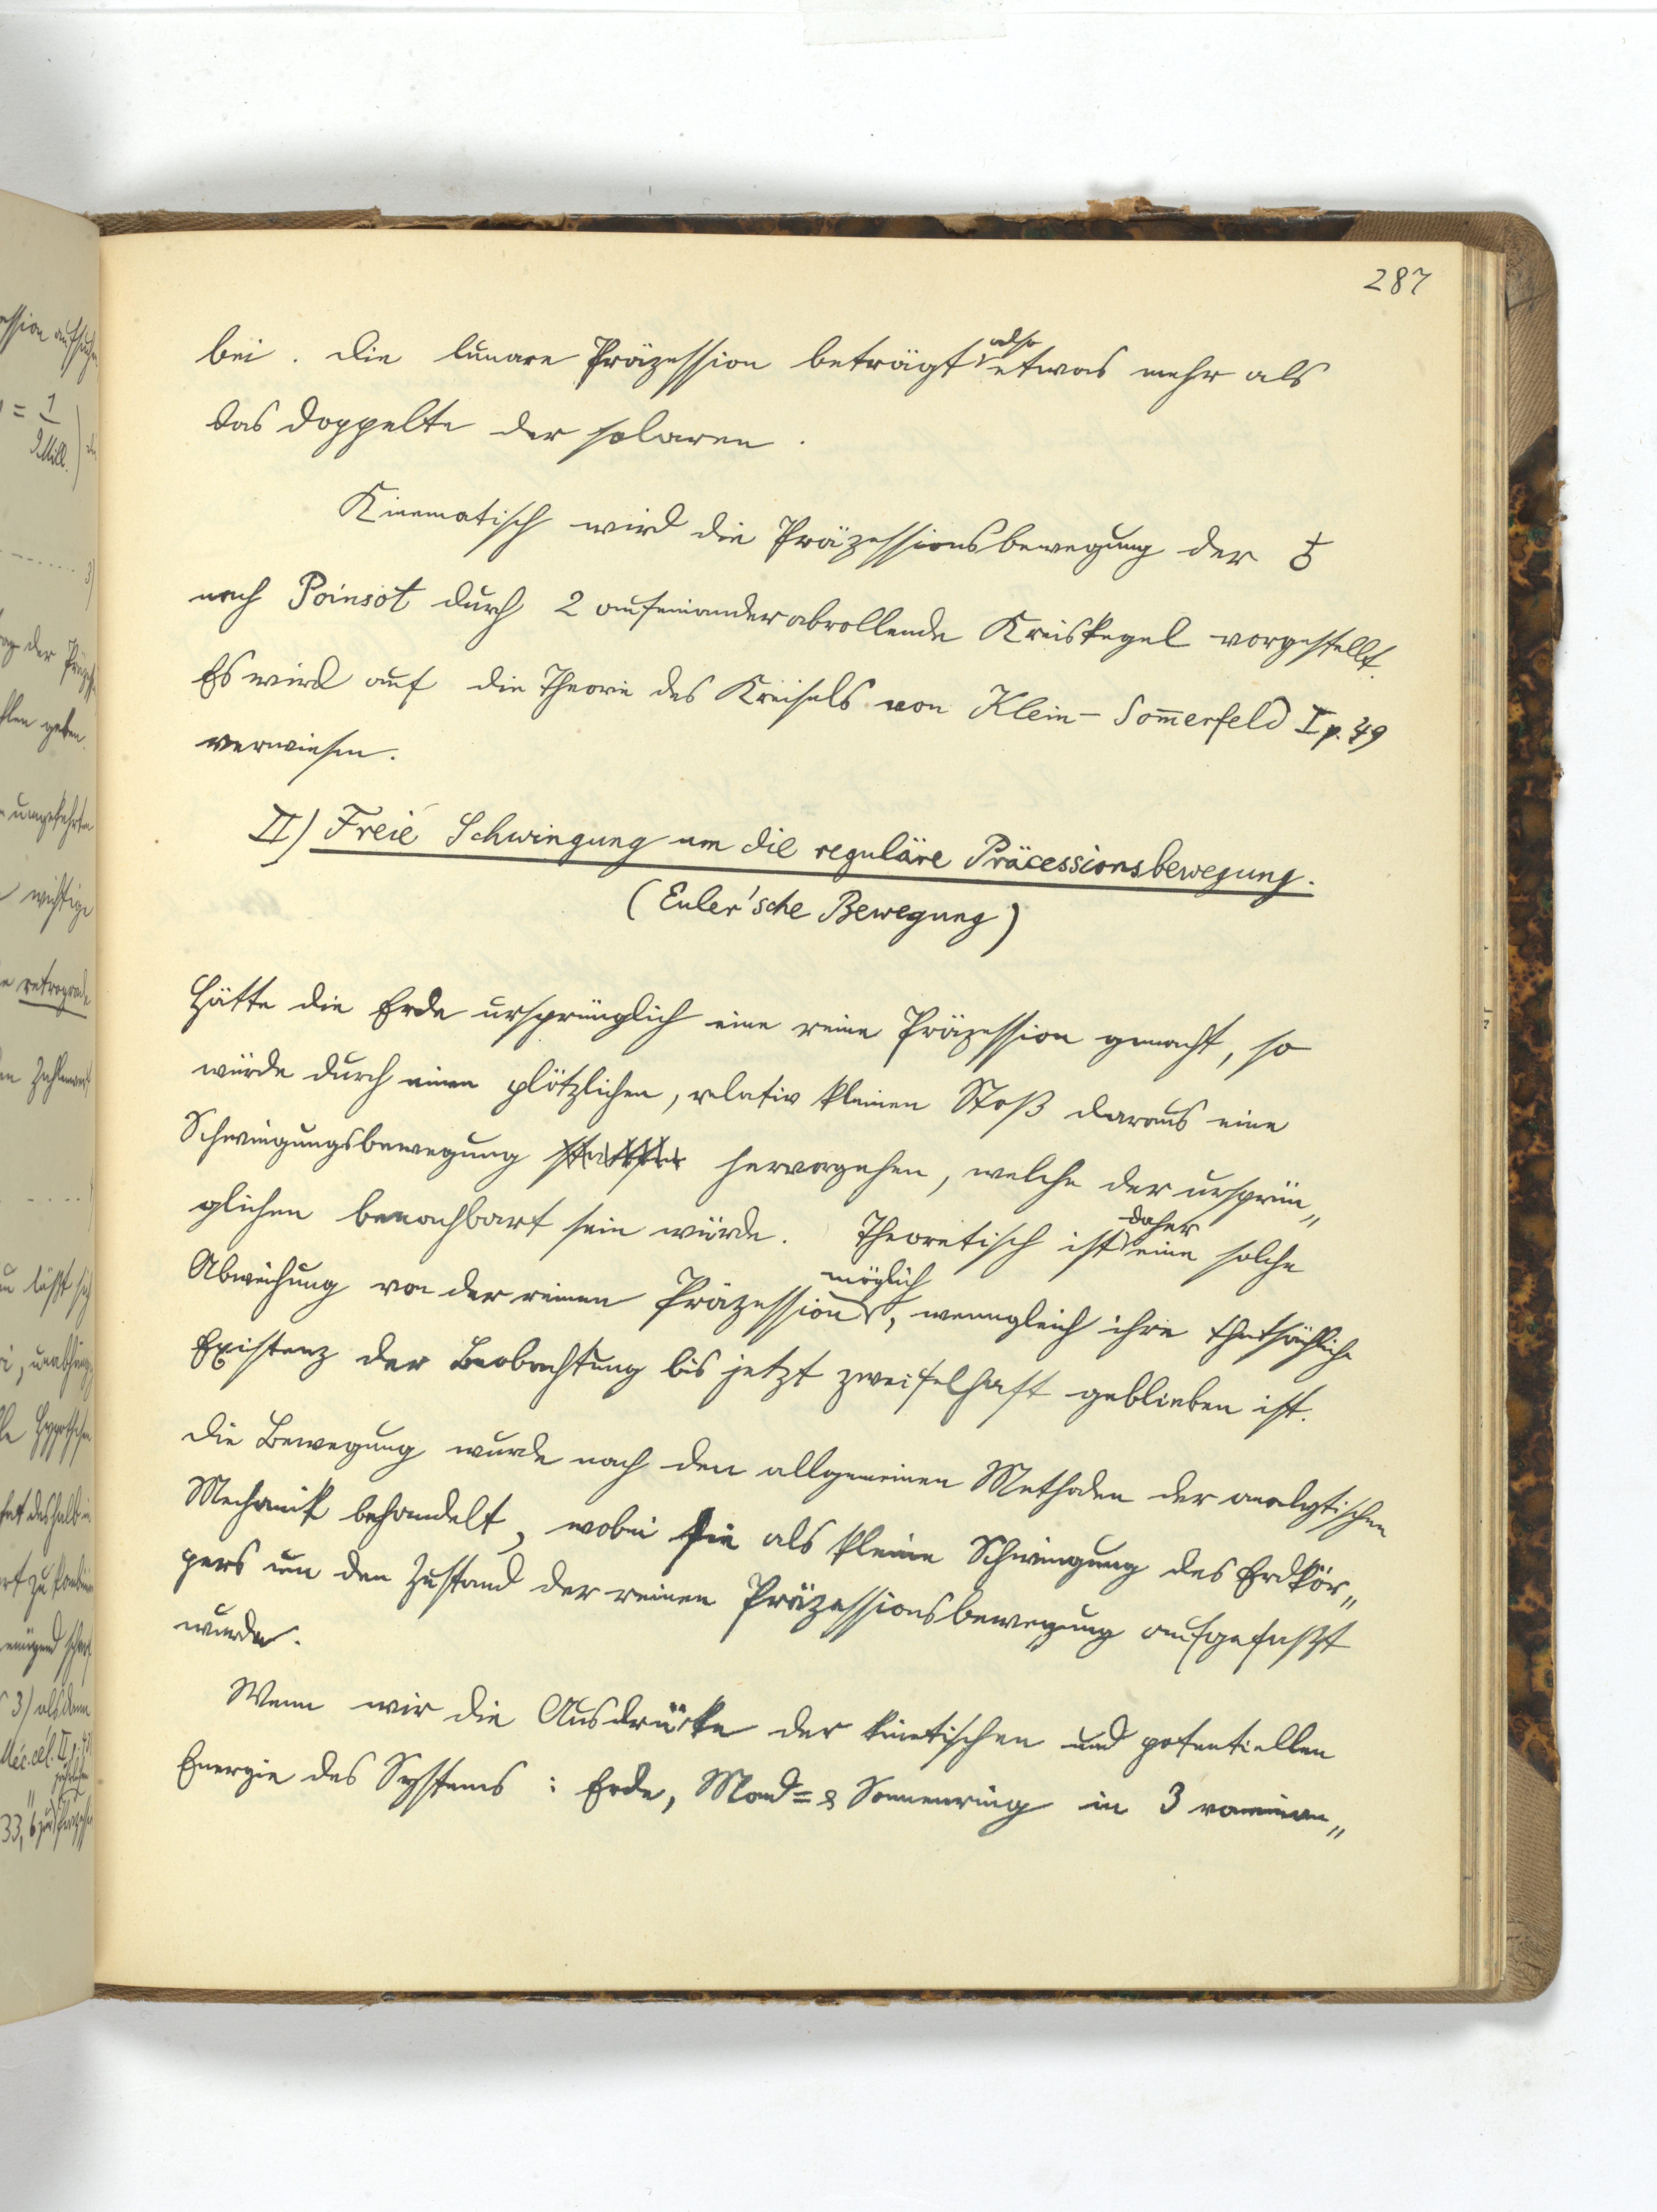 287
bei. Die lunare Präzession beträgt also etwas mehr als
das Doppelte der solaren.
Kinematisch wird die Präzessionsbewegung der ♁
nach Poinsot durch 2 aufeinander abrollende Kreiskegel vorgestellt.
Es wird auf die Theorie des Kreisels von Klein-Som̅erfeld I p. 49
verwiesen.
II) Freie Schwingung um die reguläre Präcessionsbewegung.
(Euler'sche Bewegung)
Hätte die Erde ursprünglich eine reine Präzession gemacht, so
würde durch einen plötzlichen, relativ kleinen Stoß daraus eine
Schwingungsbewegung hervorgehen, welche der ursprün„
glichen benachbart sein würde. Theoretisch ist daher eine solche
Abweichung von der reinen Präzession möglich, wenngleich ihre thatsächliche
Existenz der Beobachtung bis jetzt zweifelhaft geblieben ist.
Die Bewegung wurde nach den allgemeinen Methoden der analytischen
Mechanik behandelt, wobei sie als kleine Schwingung des Erdkör„
pers um den Zustand der reinen Präzessionsbewegung aufgefaßt
wurde.
Wenn wir die Ausdrücke der kinetischen und potentiellen
Energie des Systems: Erde, Mond= & Sonnenring in 3 voneinan„
retrograde